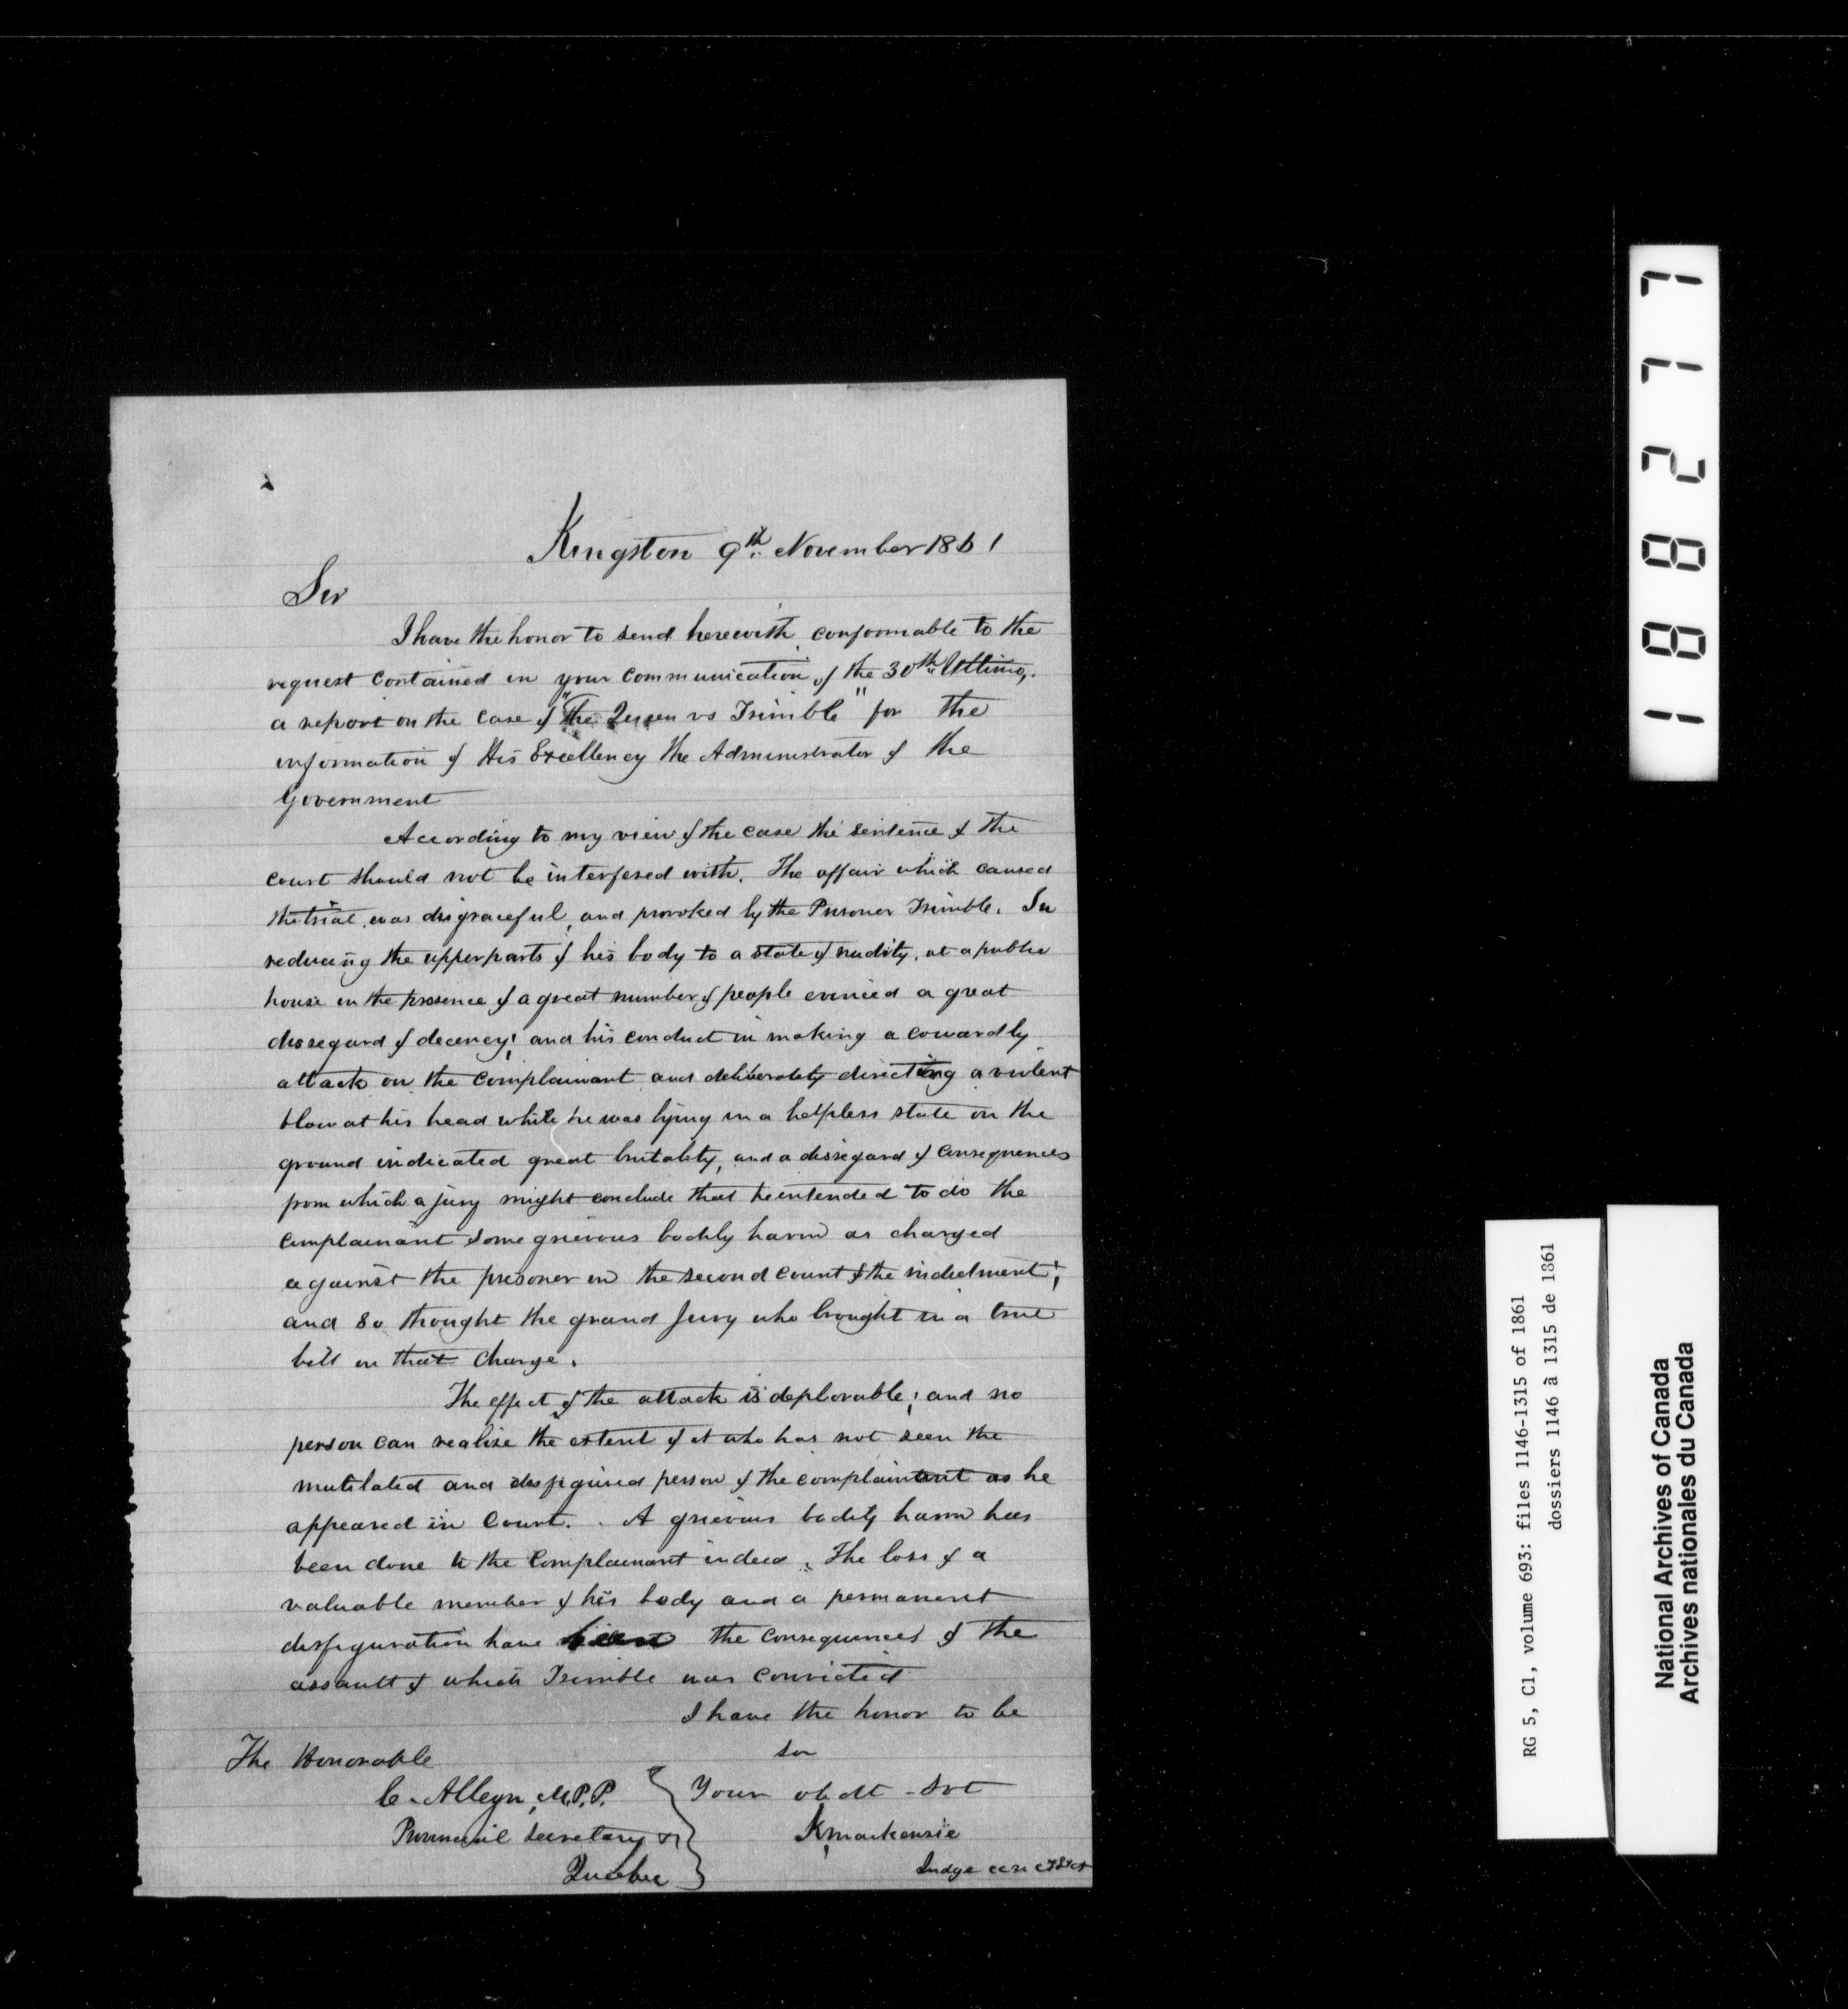 Kingston 9th November 1861
Sir
I have the honor to send herewith, conformable to the
request contained in your communication of the 30th Ultimo,
a report on the case of "The Queen vs Trimble" for the
information of His Excellency the Administrator of the
Government
According to my view of the case the sentence of the
court should not be interfered with. The affair which caused
the trial, was disgraceful, and provoked by the Prisoner Trimble. In
reducing the upper parts of his body to a state of nudity, at a public
house in the presence of a great number of people evinced a great
disregard of decency; and his conduct in making a cowardly
attack on the complainant and deliberately directing a violent
blow at his head while he was lying in a helpless state on the
ground indicated great brutality, and a disregard of consequences
from which a jury might conclude that he intended to do the
complainant some grievous bodily harm as charged
against the prisoner in the second count of the indictment;
and so thought the grand Jury who brought in a true
bill on that charge.
The effect of the attack is deplorable; and no
person can realize the extent of it who has not seen the
mutilated and disfigured person of the complaintant as he
appeared in Court. A grievous bodily harm has
been done to the Complainant indeed. The loss of a
valuable member of his body and a permanent
disfiguration have been the consequences of the
assault of which Trimble was convicted
I have the honor to be
Sir
The Honorable
C. Alleyn, M.P.P.
Your obdt Svt
Provincial Secretary &
K Mackenzie
Quebec
Judge
1 8 8 2 7 7
RG 5, C1, volume 693: files 1146-1315 of 1861
dossiers 1146 à 1315 de 1861
National Archives of Canada
Archives nationales du Canada